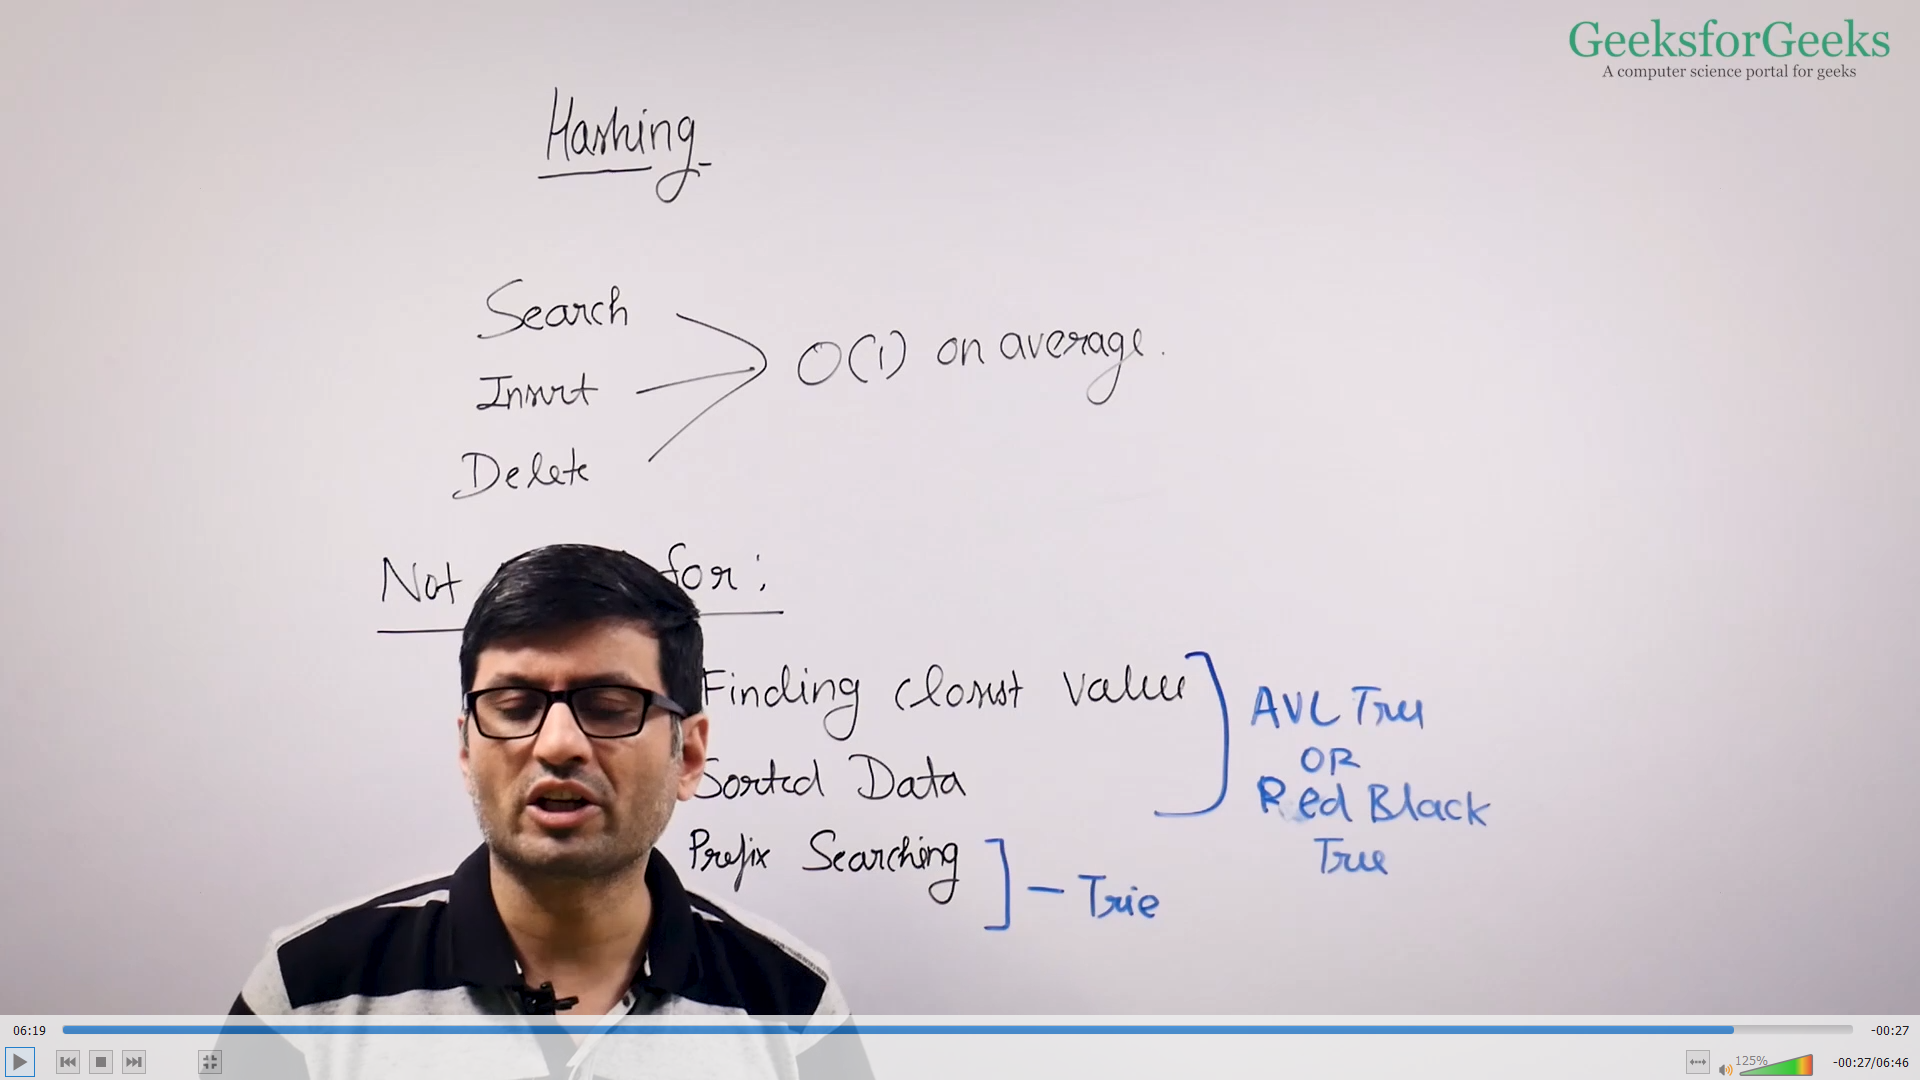 GeeksforGeeks
A computer science portal for geeks
Hashing
Search
Insert
Delete
O(1) on average.
Not for:
Finding closest value
Sorted Data
Prefix Searching
AVL Tree
OR
Red Black
Tree
- Trie
06:19
-00:27
125%
-00:27/06:46